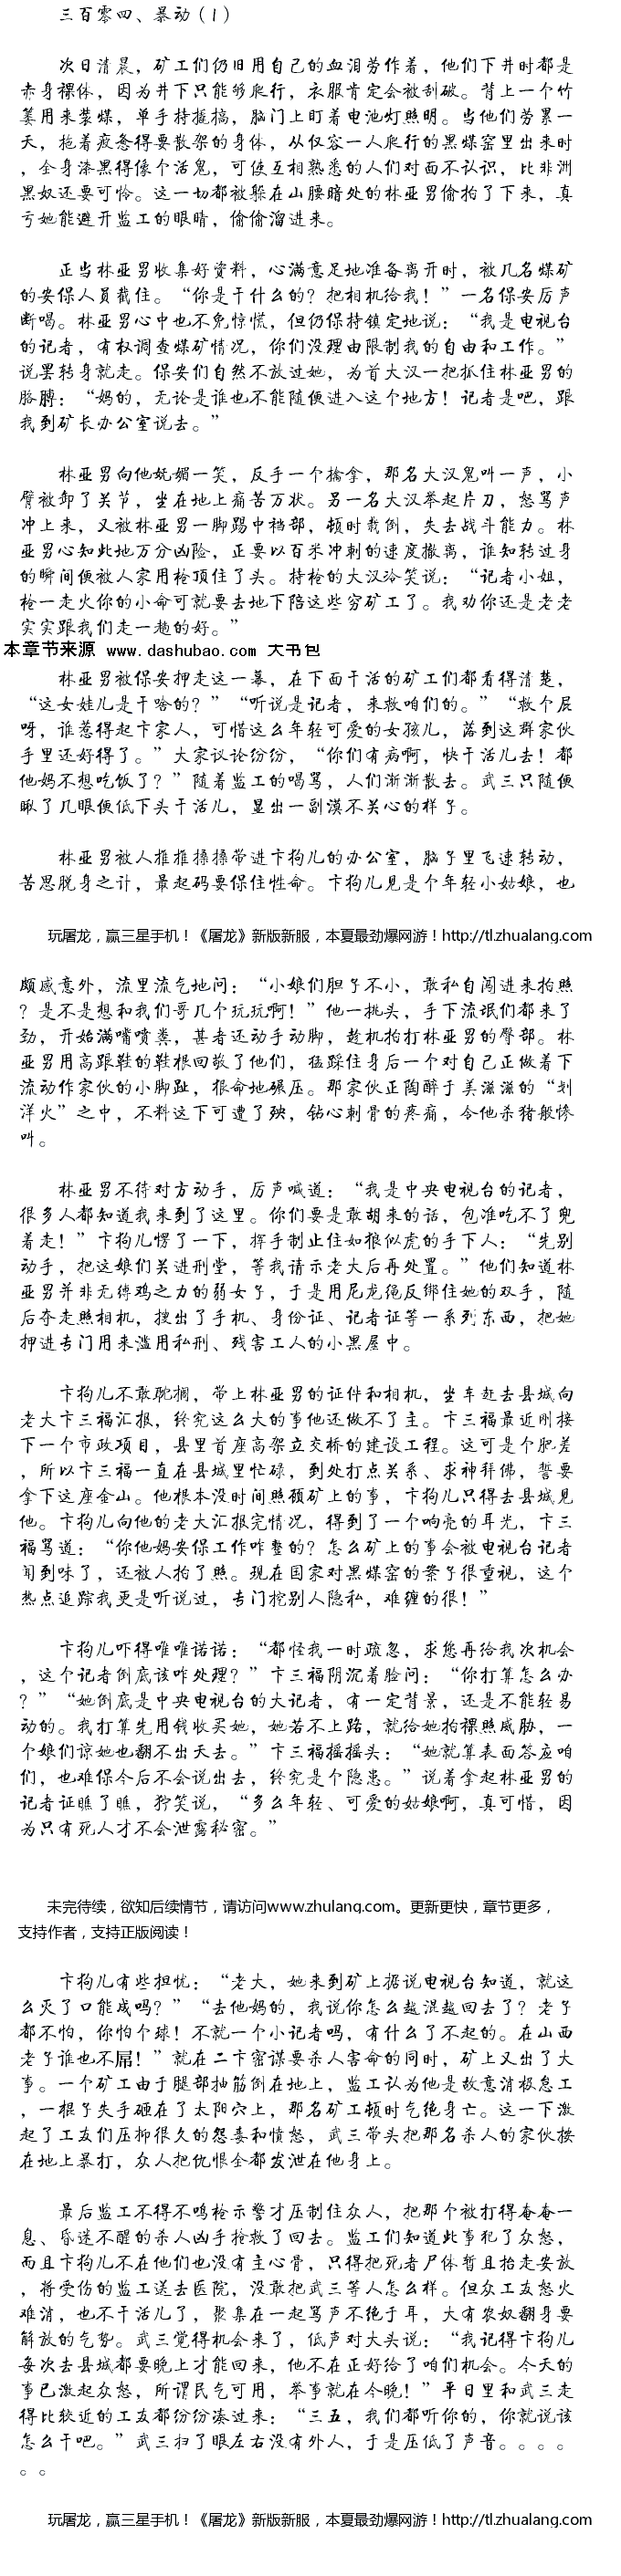 三百零四、暴动（1）
次日清晨，矿工们仍旧用自己的血泪劳作着，他们下井时都是
赤身裸体，因为井下只能够爬行，衣服肯定会被刮破。背上一个竹
篓用来装煤，单手持搋搞，脑门上盯着电池灯照明。当他们劳累一
天，拖着疲惫得要散架的身体，从仅容一人爬行的黑煤窑里出来时
，全身漆黑得像个活鬼，可使互相熟悉的人们对面不认识，比非洲
黑奴还要可怜。这一切都被躲在山腰暗处的林亚男偷拍了下来，真
亏她能避开监工的眼睛，偷偷溜进来。
正当林亚男收集好资料，心满意足地准备离开时，被几名煤矿
的安保人员截住。“你是干什么的？把相机给我！”一名保安厉声
断喝。林亚男心中也不免惊慌，但仍保持镇定地说：“我是电视台
的记者，有权调查煤矿情况，你们没理由限制我的自由和工作。”
说罢转身就走。保安们自然不放过她，为首大汉一把抓住林亚男的
胳膊：“妈的，无论是谁也不能随便进入这个地方！记者是吧，跟
我到矿长办公室说去。”
林亚男向他妩媚一笑，反手一个擒拿，那名大汉鬼叫一声，小
臂被卸了关节，坐在地上痛苦万状。另一名大汉举起片刀，怒骂声
冲上来，又被林亚男一脚踢中裆部，顿时栽倒，失去战斗能力。林
亚男心知此地万分凶险，正要以百米冲刺的速度撤离，谁知转过身
的瞬间便被人家用枪顶住了头。持枪的大汉冷笑说：“记者小姐，
枪一走火你的小命可就要去地下陪这些穷矿工了。我劝你还是老老
实实跟我们走一趟的好。”
本章节来源 www.dashubao.com 大书包
林亚男被保安押走这一幕，在下面干活的矿工们都看得清楚，
“这女娃儿是干啥的？”“听说是记者，来救咱们的。”“救个屁
呀，谁惹得起卞家人，可惜这么年轻可爱的女孩儿，落到这群家伙
手里还好得了。”大家议论纷纷，“你们有病啊，快干活儿去！都
他妈不想吃饭了？”随着监工的喝骂，人们渐渐散去。武三只随便
瞅了几眼便低下头干活儿，显出一副漠不关心的样子。
林亚男被人推推搡搡带进卞狗儿的办公室，脑子里飞速转动，
苦思脱身之计，最起码要保住性命。卞狗儿见是个年轻小姑娘，也
玩屠龙，赢三星手机！《屠龙》新版新服，本夏最劲爆网游！http://tl.zhualang.com
颇感意外，流里流气地问：“小娘们胆子不小，敢私自闯进来拍照
？是不是想和我们哥几个玩玩啊！”他一挑头，手下流氓们都来了
劲，开始满嘴喷粪，甚者还动手动脚，趁机拍打林亚男的臀部。林
亚男用高跟鞋的鞋根回敬了他们，猛踩住身后一个对自己正做着下
流动作家伙的小脚趾，狠命地碾压。那家伙正陶醉于美滋滋的“划
洋火”之中，不料这下可遭了殃，钻心刺骨的疼痛，令他杀猪般惨
叫。
林亚男不待对方动手，厉声喊道：“我是中央电视台的记者，
很多人都知道我来到了这里。你们要是敢胡来的话，包准吃不了兜
着走！”卞狗儿愣了一下，挥手制止住如狼似虎的手下人：“先别
动手，把这娘们关进刑堂，等我请示老大后再处置。”他们知道林
亚男并非无缚鸡之力的弱女子，于是用尼龙绳反绑住她的双手，随
后夺走照相机，搜出了手机、身份证、记者证等一系列东西，把她
押进专门用来滥用私刑、残害工人的小黑屋中。
卞狗儿不敢耽搁，带上林亚男的证件和相机，坐车赶去县城向
老大卞三福汇报，终究这么大的事他还做不了主。卞三福最近刚接
下一个市政项目，县里首座高架立交桥的建设工程。这可是个肥差
，所以卞三福一直在县城里忙碌，到处打点关系、求神拜佛，誓要
拿下这座金山。他根本没时间照顾矿上的事，卞狗儿只得去县城见
他。卞狗儿向他的老大汇报完情况，得到了一个响亮的耳光，卞三
福骂道：“你他妈安保工作咋整的？怎么矿上的事会被电视台记者
闻到味了，还被人拍了照。现在国家对黑煤窑的案子很重视，这个
热点追踪我更是听说过，专门挖别人隐私，难缠的很！”
卞狗儿吓得唯唯诺诺：“都怪我一时疏忽，求您再给我次机会
，这个记者倒底该咋处理？”卞三福阴沉着脸问：“你打算怎么办
？”“她倒底是中央电视台的大记者，有一定背景，还是不能轻易
动的。我打算先用钱收买她，她若不上路，就给她拍裸照威胁，一
个娘们谅她也翻不出天去。”卞三福摇摇头：“她就算表面答应咱
们，也难保今后不会说出去，终究是个隐患。”说着拿起林亚男的
记者证瞧了瞧，狞笑说，“多么年轻、可爱的姑娘啊，真可惜，因
为只有死人才不会泄露秘密。”
未完待续，欲知后续情节，请访问www.zhulang.com。更新更快，章节更多，
支持作者，支持正版阅读！
卞狗儿有些担忧：“老大，她来到矿上据说电视台知道，就这
么灭了口能成吗？”“去他妈的，我说你怎么越混越回去了？老子
都不怕，你怕个球！不就一个小记者吗，有什么了不起的。在山西
老子谁也不屌！”就在二卞密谋要杀人害命的同时，矿上又出了大
事。一个矿工由于腿部抽筋倒在地上，监工认为他是故意消极怠工
，一棍子失手砸在了太阳穴上，那名矿工顿时气绝身亡。这一下激
起了工友们压抑很久的怨毒和愤怒，武三带头把那名杀人的家伙按
在地上暴打，众人把仇恨全都发泄在他身上。
最后监工不得不鸣枪示警才压制住众人，把那个被打得奄奄一
息、昏迷不醒的杀人凶手抢救了回去。监工们知道此事犯了众怒，
而且卞狗儿不在他们也没有主心骨，只得把死者尸体暂且抬走安放
，将受伤的监工送去医院，没敢把武三等人怎么样。但众工友怒火
难消，也不干活儿了，聚集在一起骂声不绝于耳，大有农奴翻身要
解放的气势。武三觉得机会来了，低声对大头说：“我记得卞狗儿
每次去县城都要晚上才能回来，他不在正好给了咱们机会。今天的
事已激起众怒，所谓民气可用，举事就在今晚！”平日里和武三走
得比较近的工友都纷纷凑过来：“三五，我们都听你的，你就说该
怎么干吧。”武三扫了眼左右没有外人，于是压低了声音。。。。
。。
玩屠龙，赢三星手机！《屠龙》新版新服，本夏最劲爆网游！http://tl.zhualang.com